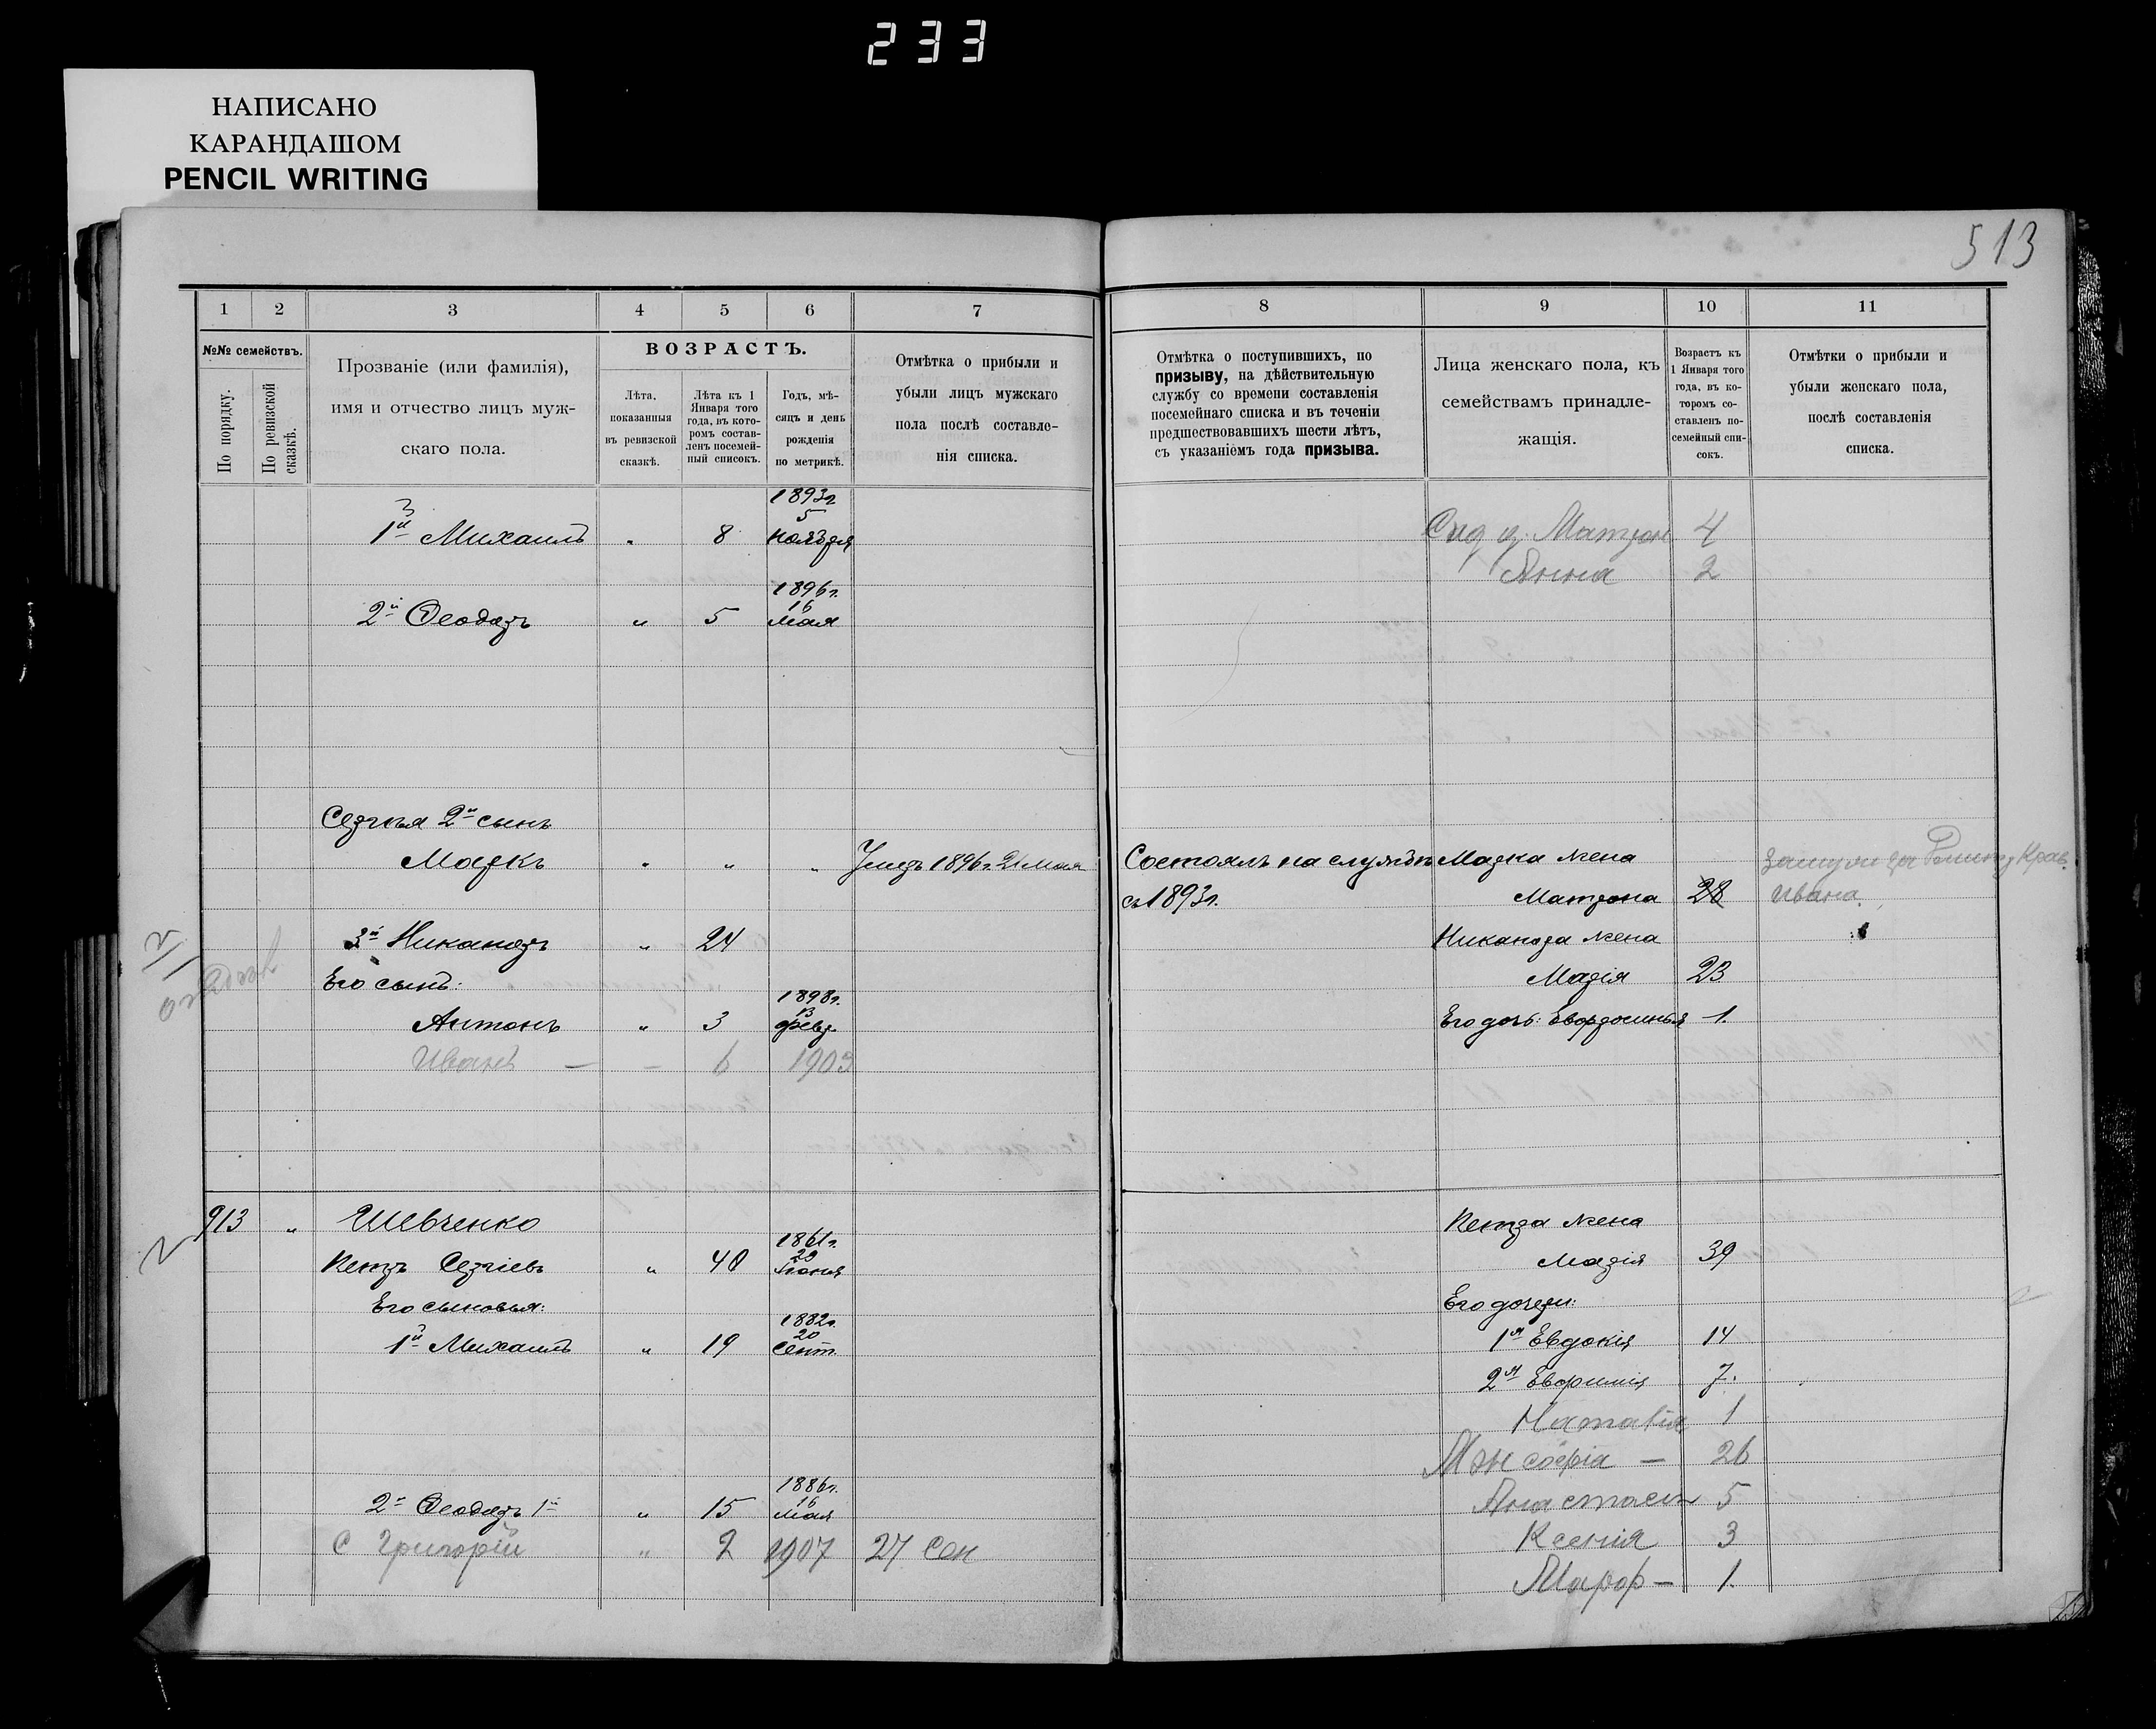 233
НАПИСАНО
КАРАНДАШОМ
PENCIL WRITING
513
1 2 3 4 5 6 7
№№ семействъ.
По порядку.
По ревизской сказкѣ.
Прозваніе (или фамилія),
имя и отчество лицъ муж-
скаго пола.
ВОЗРАСТЪ.
Лѣта,
показанныя
въ ревизской
сказкѣ.
Лѣта къ 1
Января того
года, въ кото-
ромъ состав-
ленъ посемей-
ный списокъ.
Годъ, мѣ-
сяцъ и день
рожденія
по метрикѣ.
Отмѣтка о прибыли и
убыли лицъ мужскаго
пола послѣ составле-
нія списка.
1893г
5
1й Михаилъ " 8 ноября
1896г.
16
2й Ѳеодоръ " 5 мая
Сергѣя 2й сынъ
Маркъ " " " Умеръ 1896г. 21 мая
3й Никаноръ " 24
Его сынъ:
1898г.
13
Антонъ " 3 февр.
Иванъ — — 6 1903
913 " Шевченко
1861г.
29
Петръ Сергіевъ " 40 Іюня
Его сыновья:
1882г.
20
1й Михаилъ " 19 Сент.
1886г.
16
2й Ѳеодоръ 1й " 15 мая
С Григорій " 2 1907 27 Сен
8 9 10 11
Отмѣтка о поступившихъ, по
призыву, на дѣйствительную
службу со времени составленія
посемейнаго списка и въ теченіи
предшествовавшихъ шести лѣтъ,
съ указаніемъ года призыва.
Лица женскаго пола, къ
семействамъ принадле-
жащія.
Возрастъ къ
1 Января того
года, въ ко-
торомъ со-
ставленъ по-
семейный спи-
сокъ.
Отмѣтки о прибыли и
убыли женскаго пола,
послѣ составленія
списка.
Матрон 4
Анна 2
Состоялъ на службѣ Марка жена
съ 1893г. Матрона 28 Ивана
Никанора жена
Марія 23
Его дочь: Евфросинья 1.
Петра жена
Марія 39
Его дочери:
1я Евдокія 14
2я Евфимія 7.
Наталія 1
М жн софія — 26
Анастасія 5
Ксенія 3
Марф — 1.